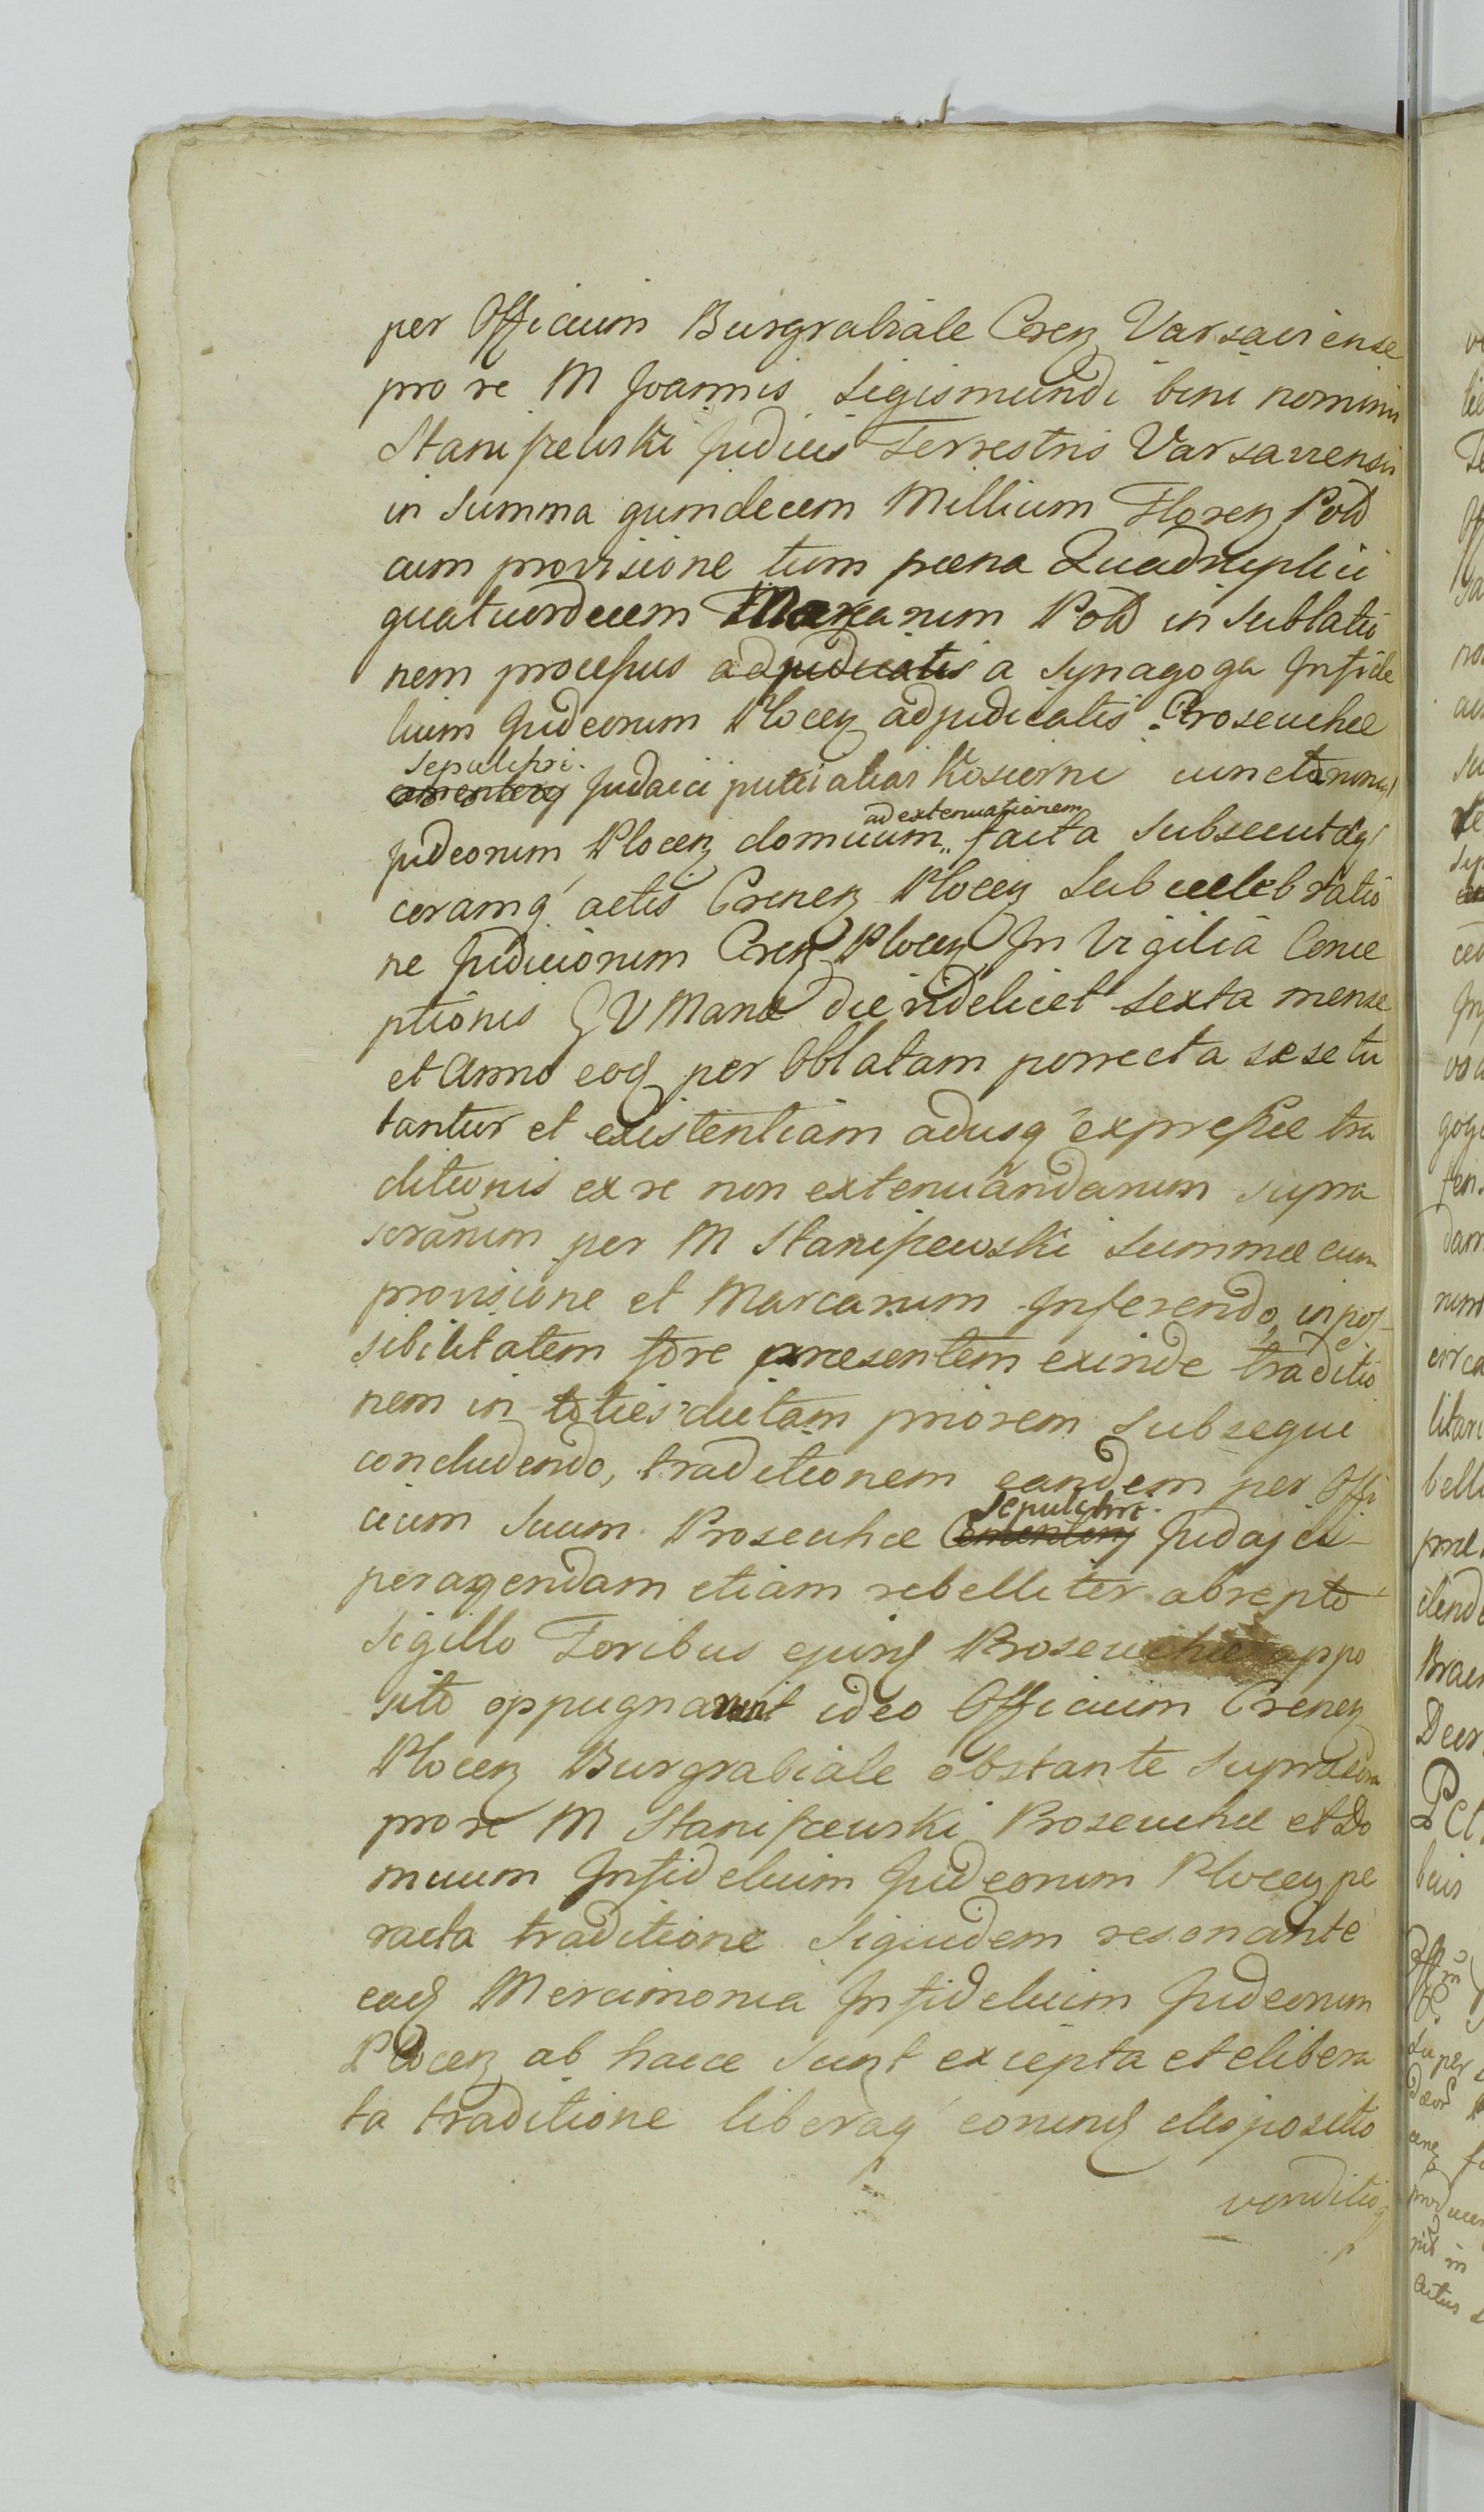 per Officium Burgrabiale Cren Varsaviense
pro re M Joannis Sigismundi bini nominis
Staniszewski Judicis Terrestris Varsaviensis
in summa quindecem Millium Floren Pold
cum provisione tum pæna Quadruplici
quatuordecem Marcarum Pold in sublatio
nem processus adjudicatis a Synagoga Infide
lium Judeorum Plocen adjudicatis Proseuchæ
Sepulchri
Judaici putei alias Kosiorni cunctorumq
Judeorum Plocen domuum ad extenuationem facta subsecutaq
coramq actis Crenen Plocen sub celebratio
ne Judiciorum Cren Plocen In Vigilia Conce
ptionis V Mariæ die videlicet sexta mense
et Anno eod per Oblatam porrecta sese tu
tantur et existentiam adusq expressæ tra
ditionis ex re non extenuandarum supra
scrarum per M Staniszewski summæ cum
provisione et Marcarum Inferendo, in pos
sibilitatem fore præsentem exinde traditio
nem in toties dictam priorem subsequi
concludendo, traditionem eandem per Offi
cium suum Proseuchæ Sepulchri Judajci
peragendam etiam rebelliter abrepto
Sigillo Foribus ejusd Proseuchæ appo
sito oppugnarunt ideo Officium Crenen
Plocen Burgrabiale obstante suprascra
pro re M Staniszewski Proseuchæ et Do
muum Infidelium Judeorum Plocen pe
racta traditione siquidem resonante
ead Mercimonia Infidelium Judeorum
Plocen ab hacce sunt excepta et elibera
ta traditione liberaq eorund dispositio
venditioq